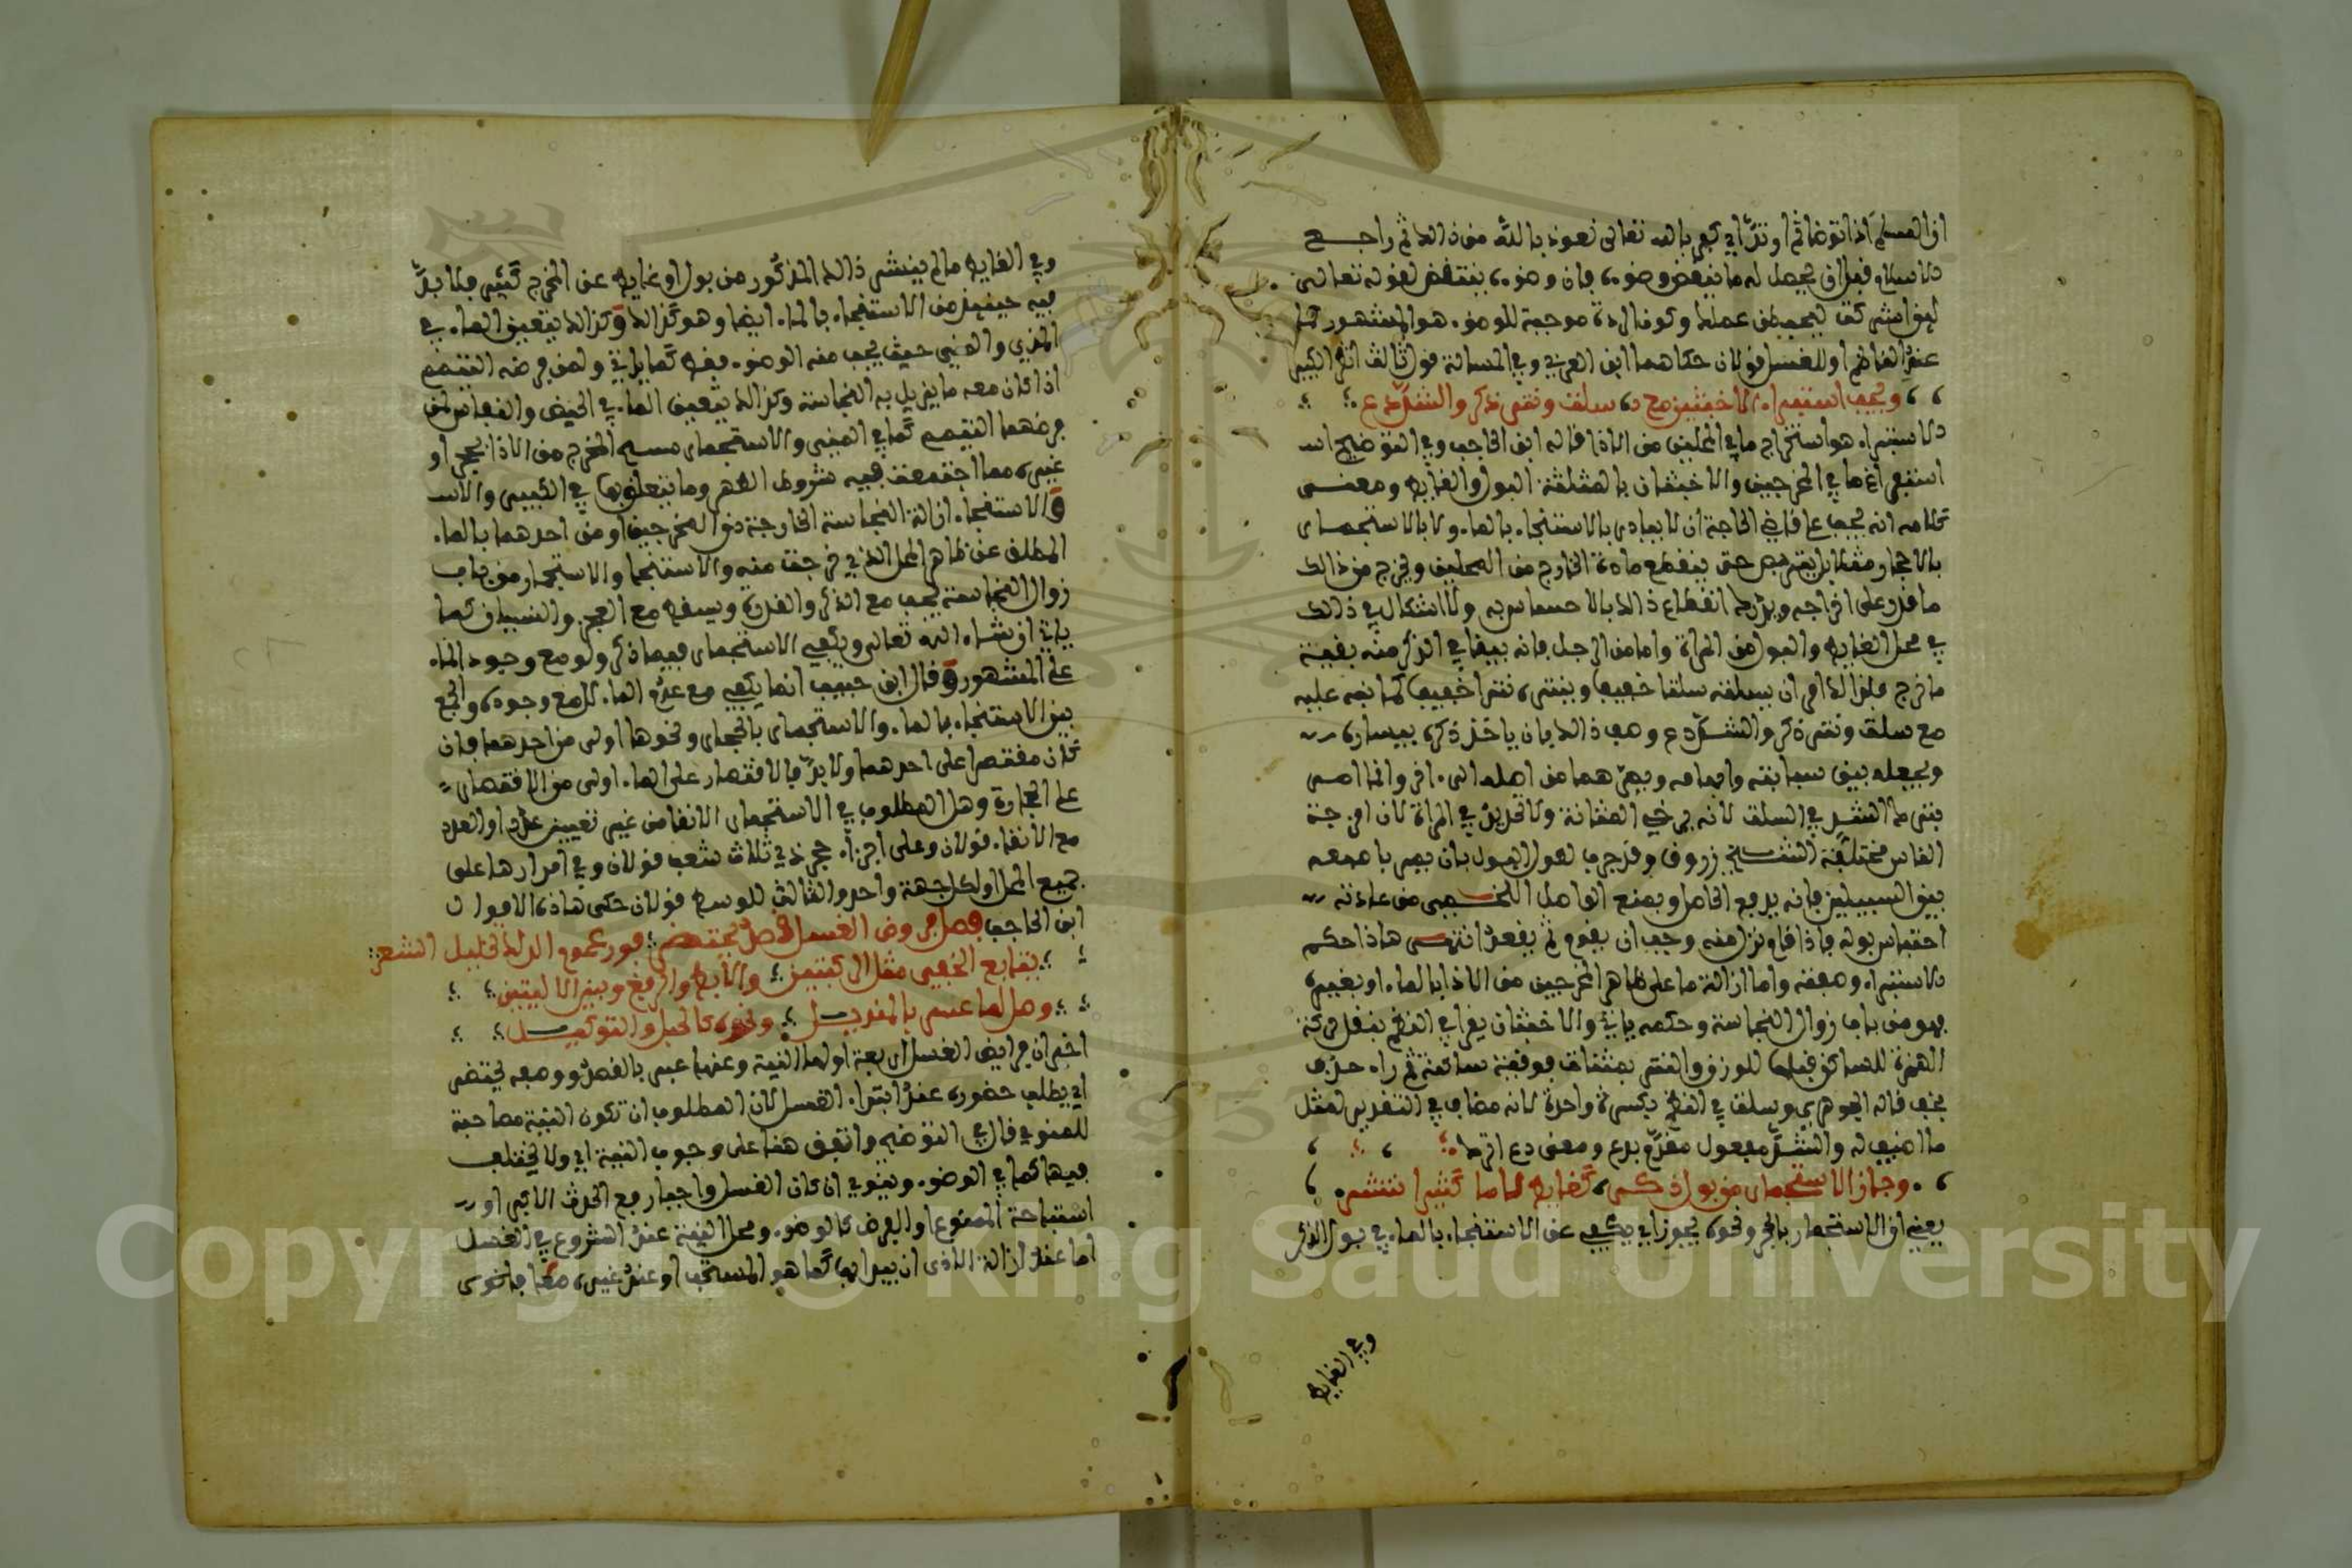 ان المسلم اذا توضا ثم ارتد اي كفر بالله تعالى نعوذ بالله من ذالك ثم راجع
الاسلام قبل ان يحصل له ما ينقض وضوءه فان وضوءه ينتقض لقوله تعالى
لين اشركت ليحبطن عملك وكون الردة موجبة للوضوء هو المشهور
عند ابن القاسم او للغسل قولان حكاهما ابن العربي وفي المسالة قول ثالث انظر الكبير
ويجب استبراء الاخبثين مع سلت ونتر ذكر والشد دع
الاستبراء هو استخراج ما في المحلين من الاذا قاله ابن الحاجب وفي التوضيح اي
استفراغ ما في المخرجين والاخبثان بالمثلثة البول والغايط ومعنى
كلامه انه يجب على قاضي الحاجة ان لا يبادر بالاستنجاء بالماء ولا بالاستجمار
بالاحجار مثلا بل يتربص حتى ينقطع مادة الخارج من المحلين ويخرج من ذالك
ما قدر على اخراجه ويدرك انقطاع ذالك بالاحساس به ولا اشكال في ذالك
في محل الغايط والبول من المراة واما من الرجل فانه يبقا في الذكر منه بقية
ما خرج فلذالك امر ان يسلته سلتا خفيفا وينتره نترا خفيفا كما نبه عليه
مع سلت ونتر ذكر والشد دع وصف ذالك بان ياخذ ذكره بيساره
ويجعله بين سبابته وابهامه ويمرهما من اصله الى اخره وانما امر
بترك الشد في السلت لانه يرخي المثانة ولا تحديد في المراة لان امزجة
الناس مختلفة الشيخ زروق وقد جرب لقول البول بان يمر باصبعه
بين السبيلين فانه يدفع الحاصل ويمنع الواصل اللخمي من عادته
احتباس بوله فاذا قام نزل منه وجب ان يقوم ثم يقعد انتهى هاذا حكم
الاستبراء وصفته واما ازالة ما على ظاهر المخرجين من الاذا بالماء او بغيره
فهو من باب زوال النجاسة وحكمه ياتي والاخبثان يقرا في النظم بنقل حركة
الهمزة للساكن قبلها للوزن والنتر بمثناة فوقية ساكنة ثم راء جذب
بجف قاله الجوهري وسلت في النظم بكسرة واحدة لانه مضاف في التقدير لمثل
ما اضيف له والشد مفعول مقدم بدع ومعنى دع اترك
وجاز الاستجمار من بول ذكر كغايط لا ما كثيرا انتشر
يعني ان الاستجمار بالحجر ونحوه يجوز اي يكفي عن الاستنجاء بالماء في بول الذكر
وفي الغايط
وفي الغايط ما لم ينتشر ذالك المذكور من بول او غايط عن المخرج كثير فلا بد
فيه حينيذ من الاستنجاء بالماء ايضا وهو كذالك وكذالك يتعين الماء في
المذي والمني حيث يجب منه الوضوء فقط كما ياتي ولمن فرضه التيمم
اذا كان معه ما يزيل به النجاسة وكذالك يتعين الماء في الحيض والنفاس لمن
فرضهما التيمم كما في المني والاستجمار مسح المخرج من الاذا بحجر او
غيره مما اجتمعت فيه شروط انظرها وما يتعلق بها في الكبير والاس
والاستنجاء ازالة النجاسة الخارجة من المخرجين او من احدهما بالماء
المطلق عن ظاهر المحل الذي خرجت منه والاستنجا والاستجمار من باب
زوال النجاسة يجب مع الذكر والقدرة ويسقط مع العجز والنسيان كما
ياتي ان شاء الله تعالى ويكفي الاستجمار فيما ذكر ولو مع وجود الماء
على المشهور وقال ابن حبيب انما يكفي مع عدم الماء لا مع وجوده والجمع
بين الاستنجاء بالماء والاستجمار بالحجار ونحوها اولى من احدهما فان
كان مقتصرا على احدهما ولا بد فالاقتصار على الماء اولى من الاقتصار
على الحجارة وهل المطلوب في الاستجمار الانقا من غير تعيين عدد او العدد
مع الانقاء قولان وعلى اجزاء حجر ذي ثلاث شعب قولان وفي امرارها على
جميع المحل او لكل جهة واحد والثالث للوسط قولان حكى هاذه الاقوال
ابن الحاجب فصل فروض الغسل قصد يحتضر فور عموم الدلك تخليل الشعر
بتابع الخفي مثل الركبتين والابط والرفغ وبين الاليتين
وصل لما عسر بالمنديل ونحوه كالحبل والتوكيل
اخبر ان فرايض الغسل اربعة اولها النية وعنها عبر بالقصد ووصفه يحتضر
اي يطلب حضوره عند ابتداء الغسل لان المطلوب ان تكون النية مصاحبة
للمنوي قال في التوضيح واتفق هنا على وجوب النية اي ولا يختلف
فيها كما في الوضوء وينوي ان كان الغسل واجبا رفع الحدث الاكبر او
استباحة الممنوع او الفرض كالوضوء ومحل النية عند الشروع في الغسل
اما عند ازالة الاذى ان بدا بها كما هو المستحب او عند غيره مما فاخرى
Copyright © King Saud University
1957